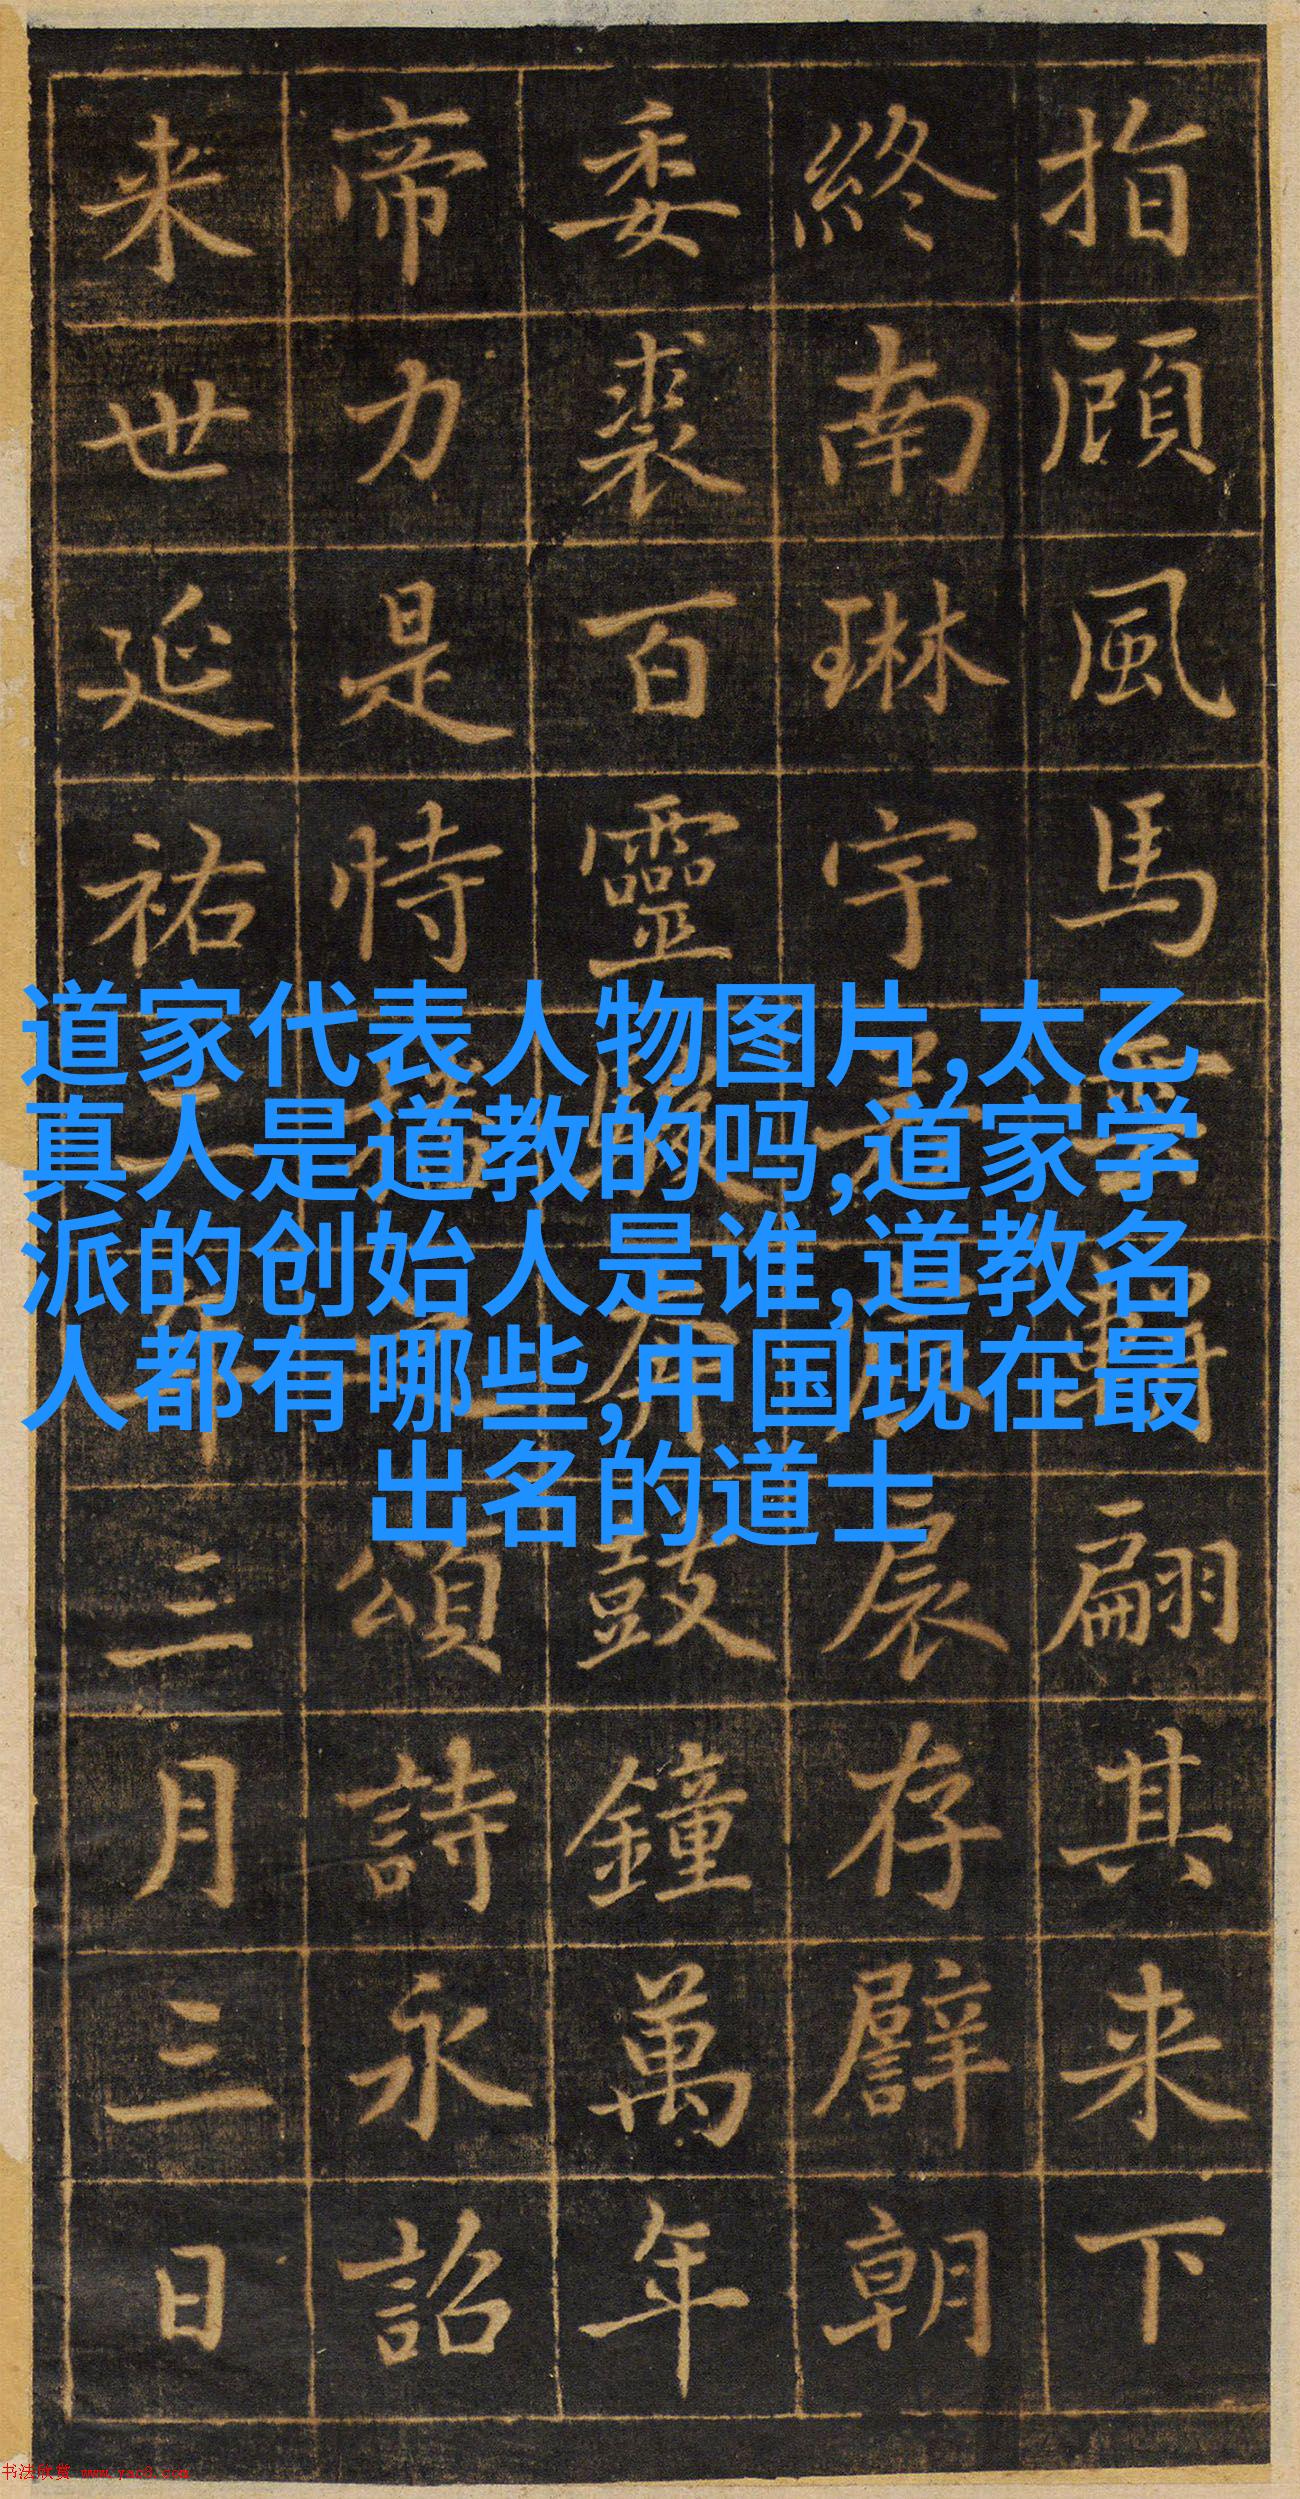 指顧風馬雲軿翩其来下
終南琳宇存譬朝
委裘百靈駿奔鼓鐘萬年
帝力是恃播頌詩永詔
来世延祐三年三月三日
道家代表人物图片,太乙
真人是道教的吗,道家学
派的创始人是谁,道教名
人都有哪些,中国现在最
出名的道士
书法欣赏 www.yac8.com